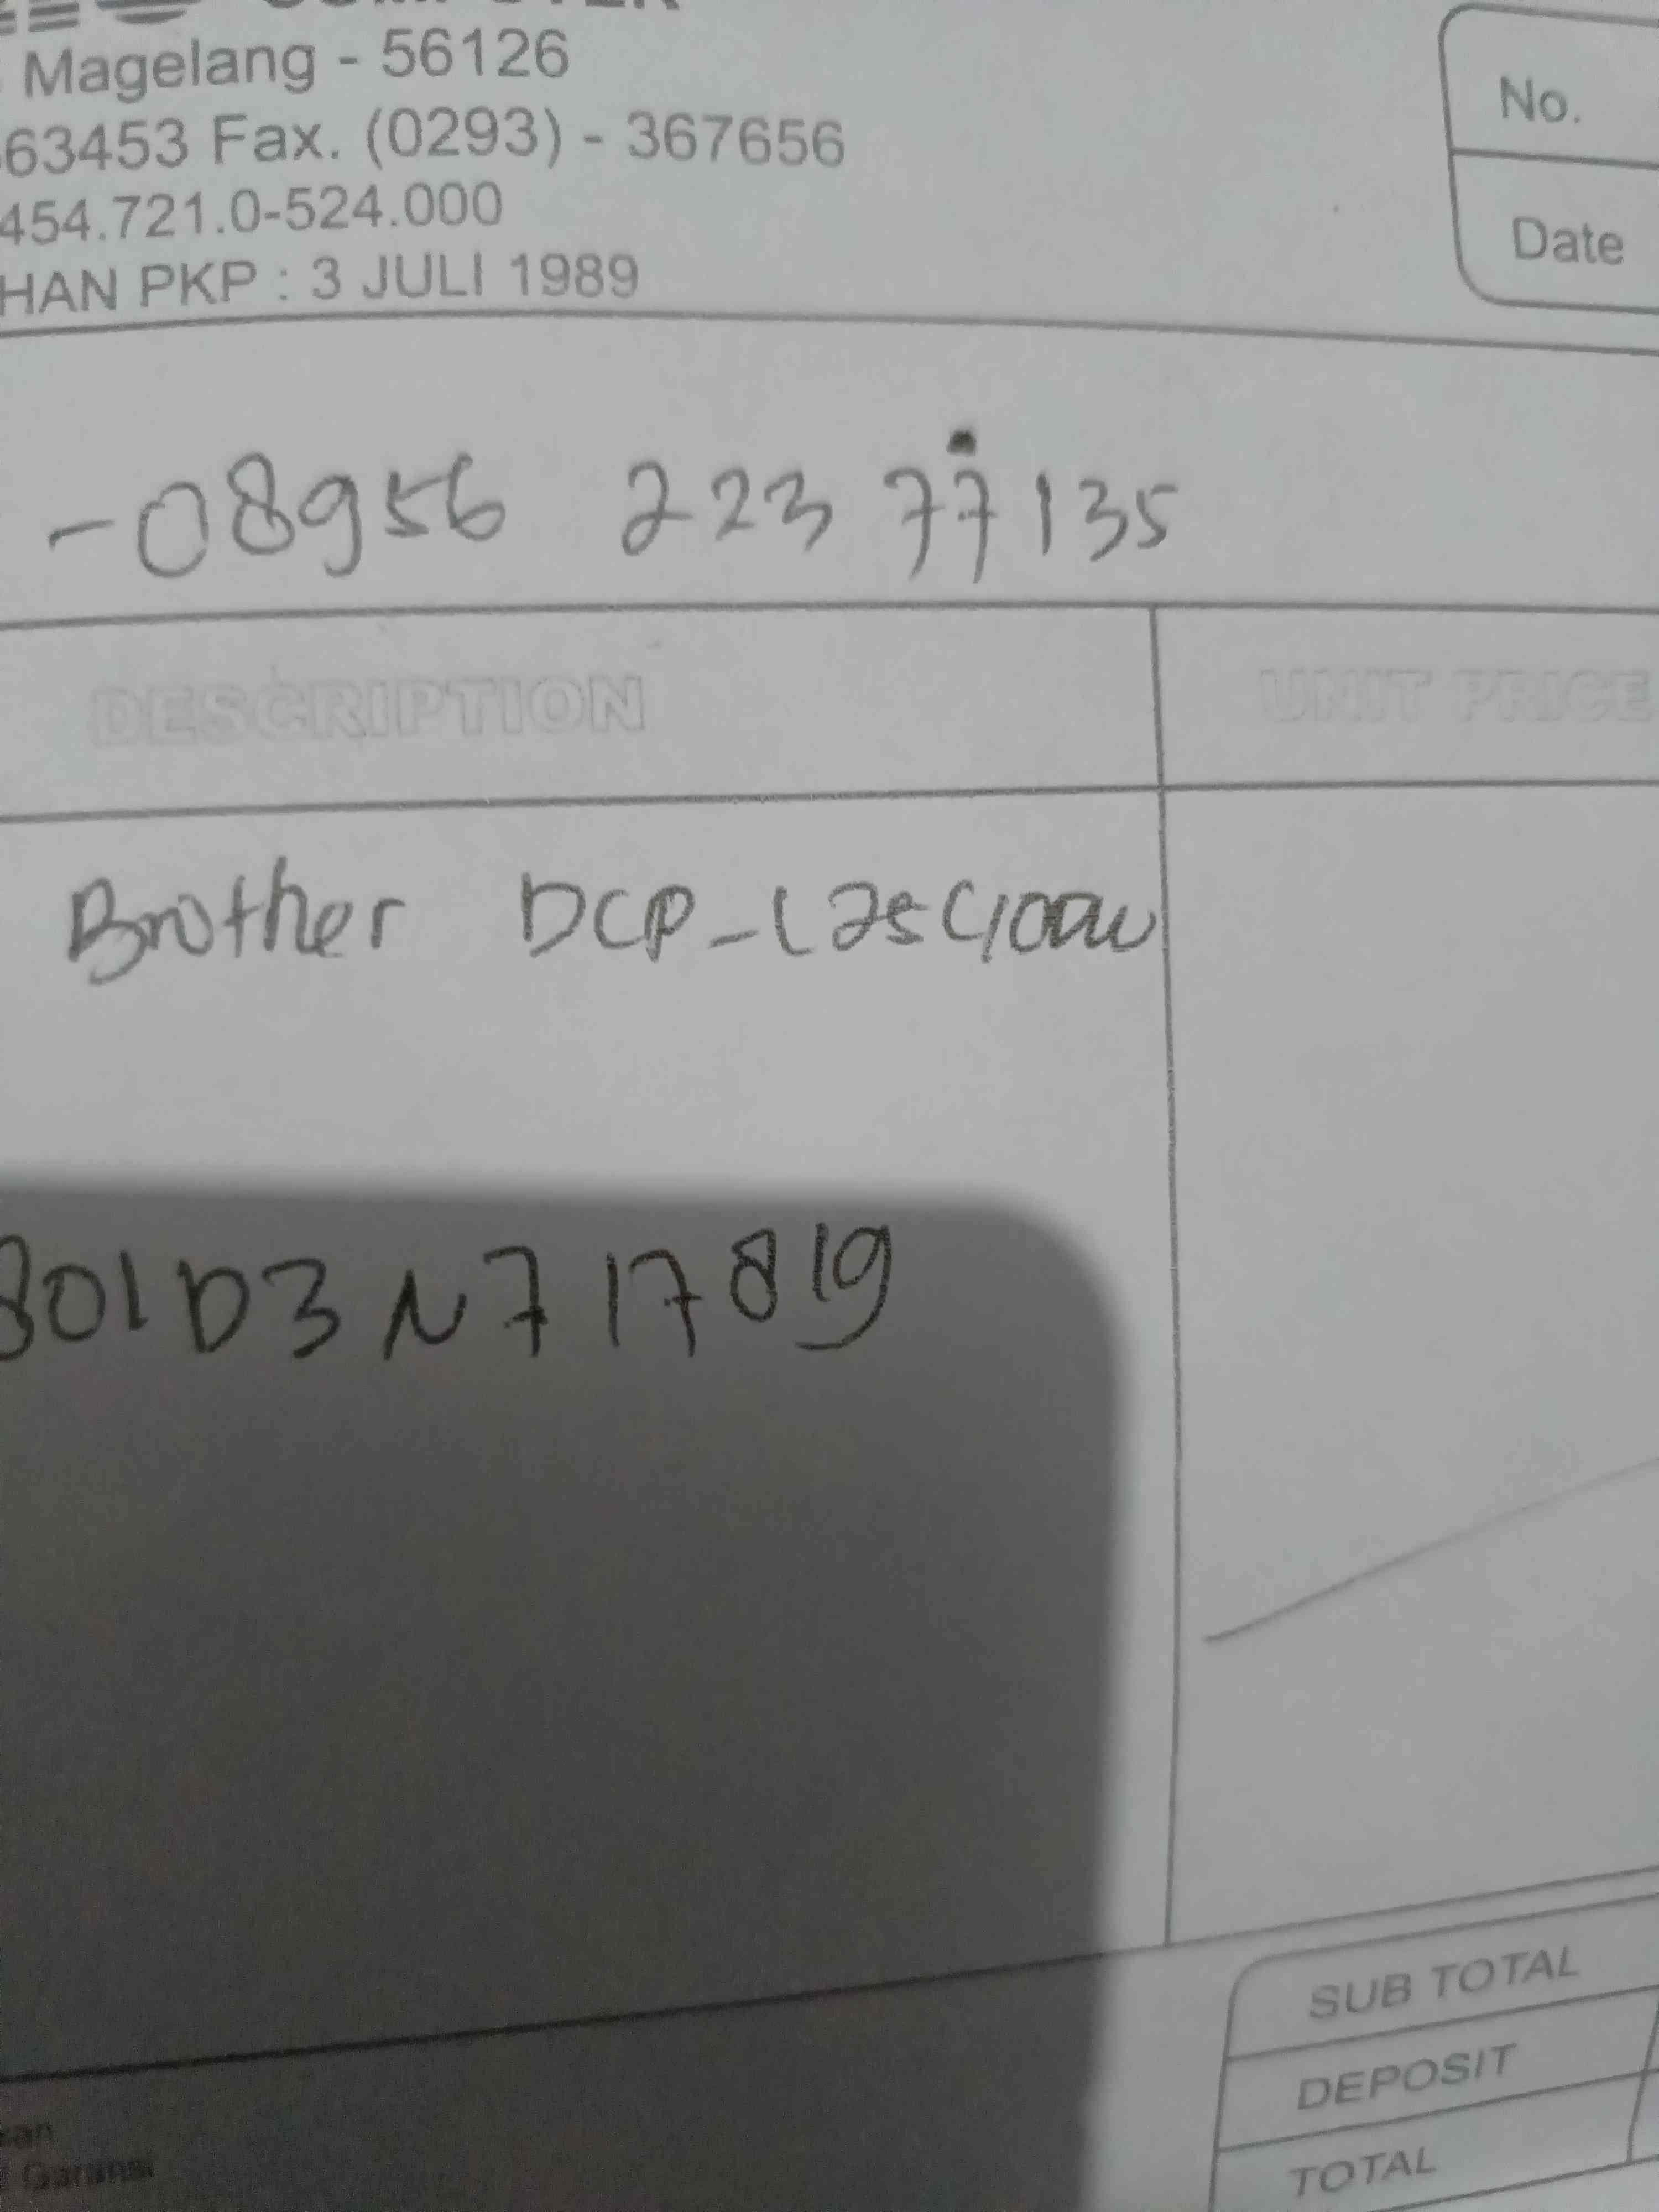 COMPUTER
Magelang - 56126
63453 Fax. (0293) - 367656
454.721.0-524.000
HAN PKP : 3 JULI 1989
No.
Date
-08956 223 77135
DESCRIPTION
UNIT PRICE
Brother DCP-L2540DW
801D3N717819
SUB TOTAL
DEPOSIT
TOTAL
an
Garansi